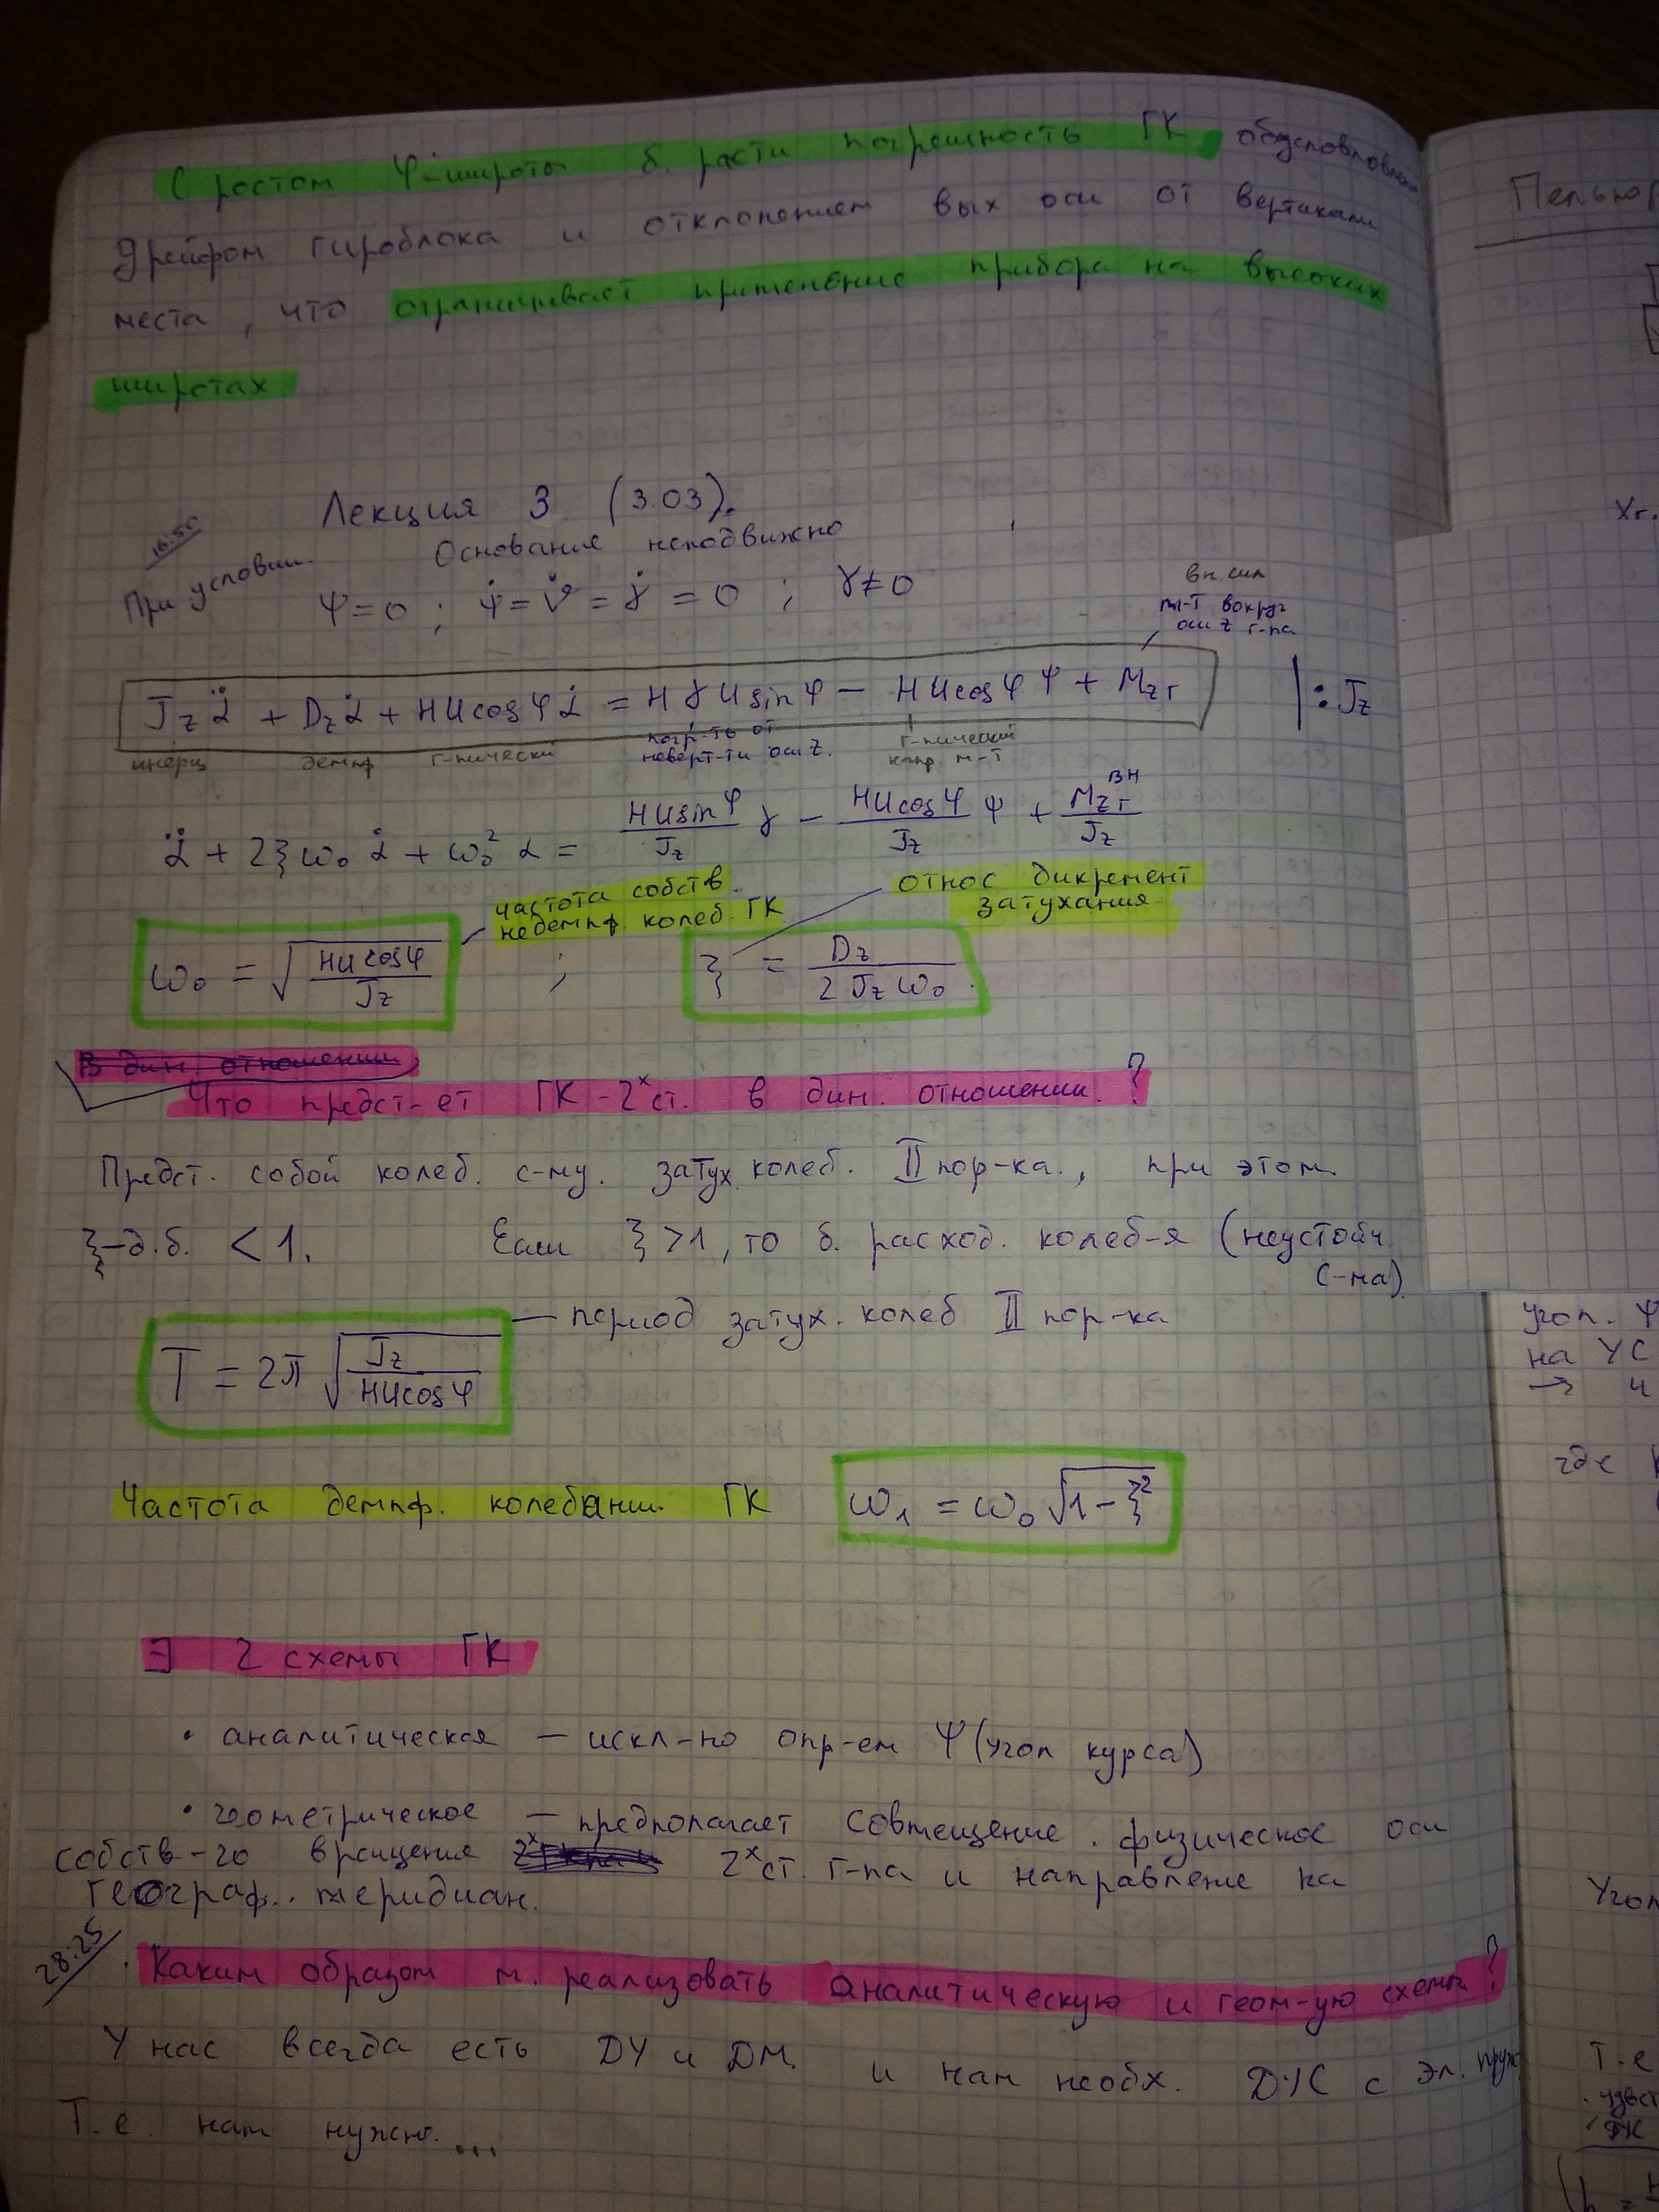 С ростом φ-широты б. расти погрешность ГК обусловловлен
дрейфом гироблока и отклонением вых оси от вертикали
места, что ограничивает применение прибора на высоких
широтах
Лекция 3 (3.03).
16:50
При условии. Основание неподвижно
Ψ=0 ; ψ̇ = ϑ̇ = γ̇ = 0 ; γ≠0
вн. сил
м-т вокруг
оси z г-па
J_z α̈ + D_z α̇ + HU cos φ α = H γ U sin φ − HU cos φ ψ + M_zг | : J_z
инерц демпф г-пический погр-ть от неверт-ти оси z. г-пический напр. м-т
α̈ + 2ξω₀ α̇ + ω₀² α = HU sin φ / J_z γ − HU cos φ / J_z ψ + M_zг^вн / J_z
частота собств.
недемпф. колеб. ГК
относ дикремент
затухания
ω₀ = √(HU cos φ / J_z) ; ξ = D_z / 2 J_z ω₀.
В дин. отношении
Что предст-ет ГК-2ˣ ст. в дин. отношении.?
Предст. собой колеб. с-му. затух. колеб. II пор-ка., при этом
ξ-д.б. < 1. Если ξ > 1, то б. расход. колеб-я (неустойч.
с-ма)
T = 2π √(J_z / HU cos φ) — период затух. колеб II пор-ка
Частота демпф. колебании ГК ω₁ = ω₀ √(1 − ξ²)
∃ 2 схемы ГК
• аналитическая — искл-но опр-ем Ψ (угол курса)
• геометрическое — предполагает совмещение физическое оси
собств-го вращения 2ˣ ст. г-па и направление на
географ. меридиан.
28:25
• Каким образом м. реализовать аналитическую и геом-ую схемы?
У нас всегда есть ДУ и ДМ. и нам необх. ДУС с эл. пруж
Т.е. нам нужно. ...
Угол. Ψ
на УС
→ и
где
Угол
Т.е